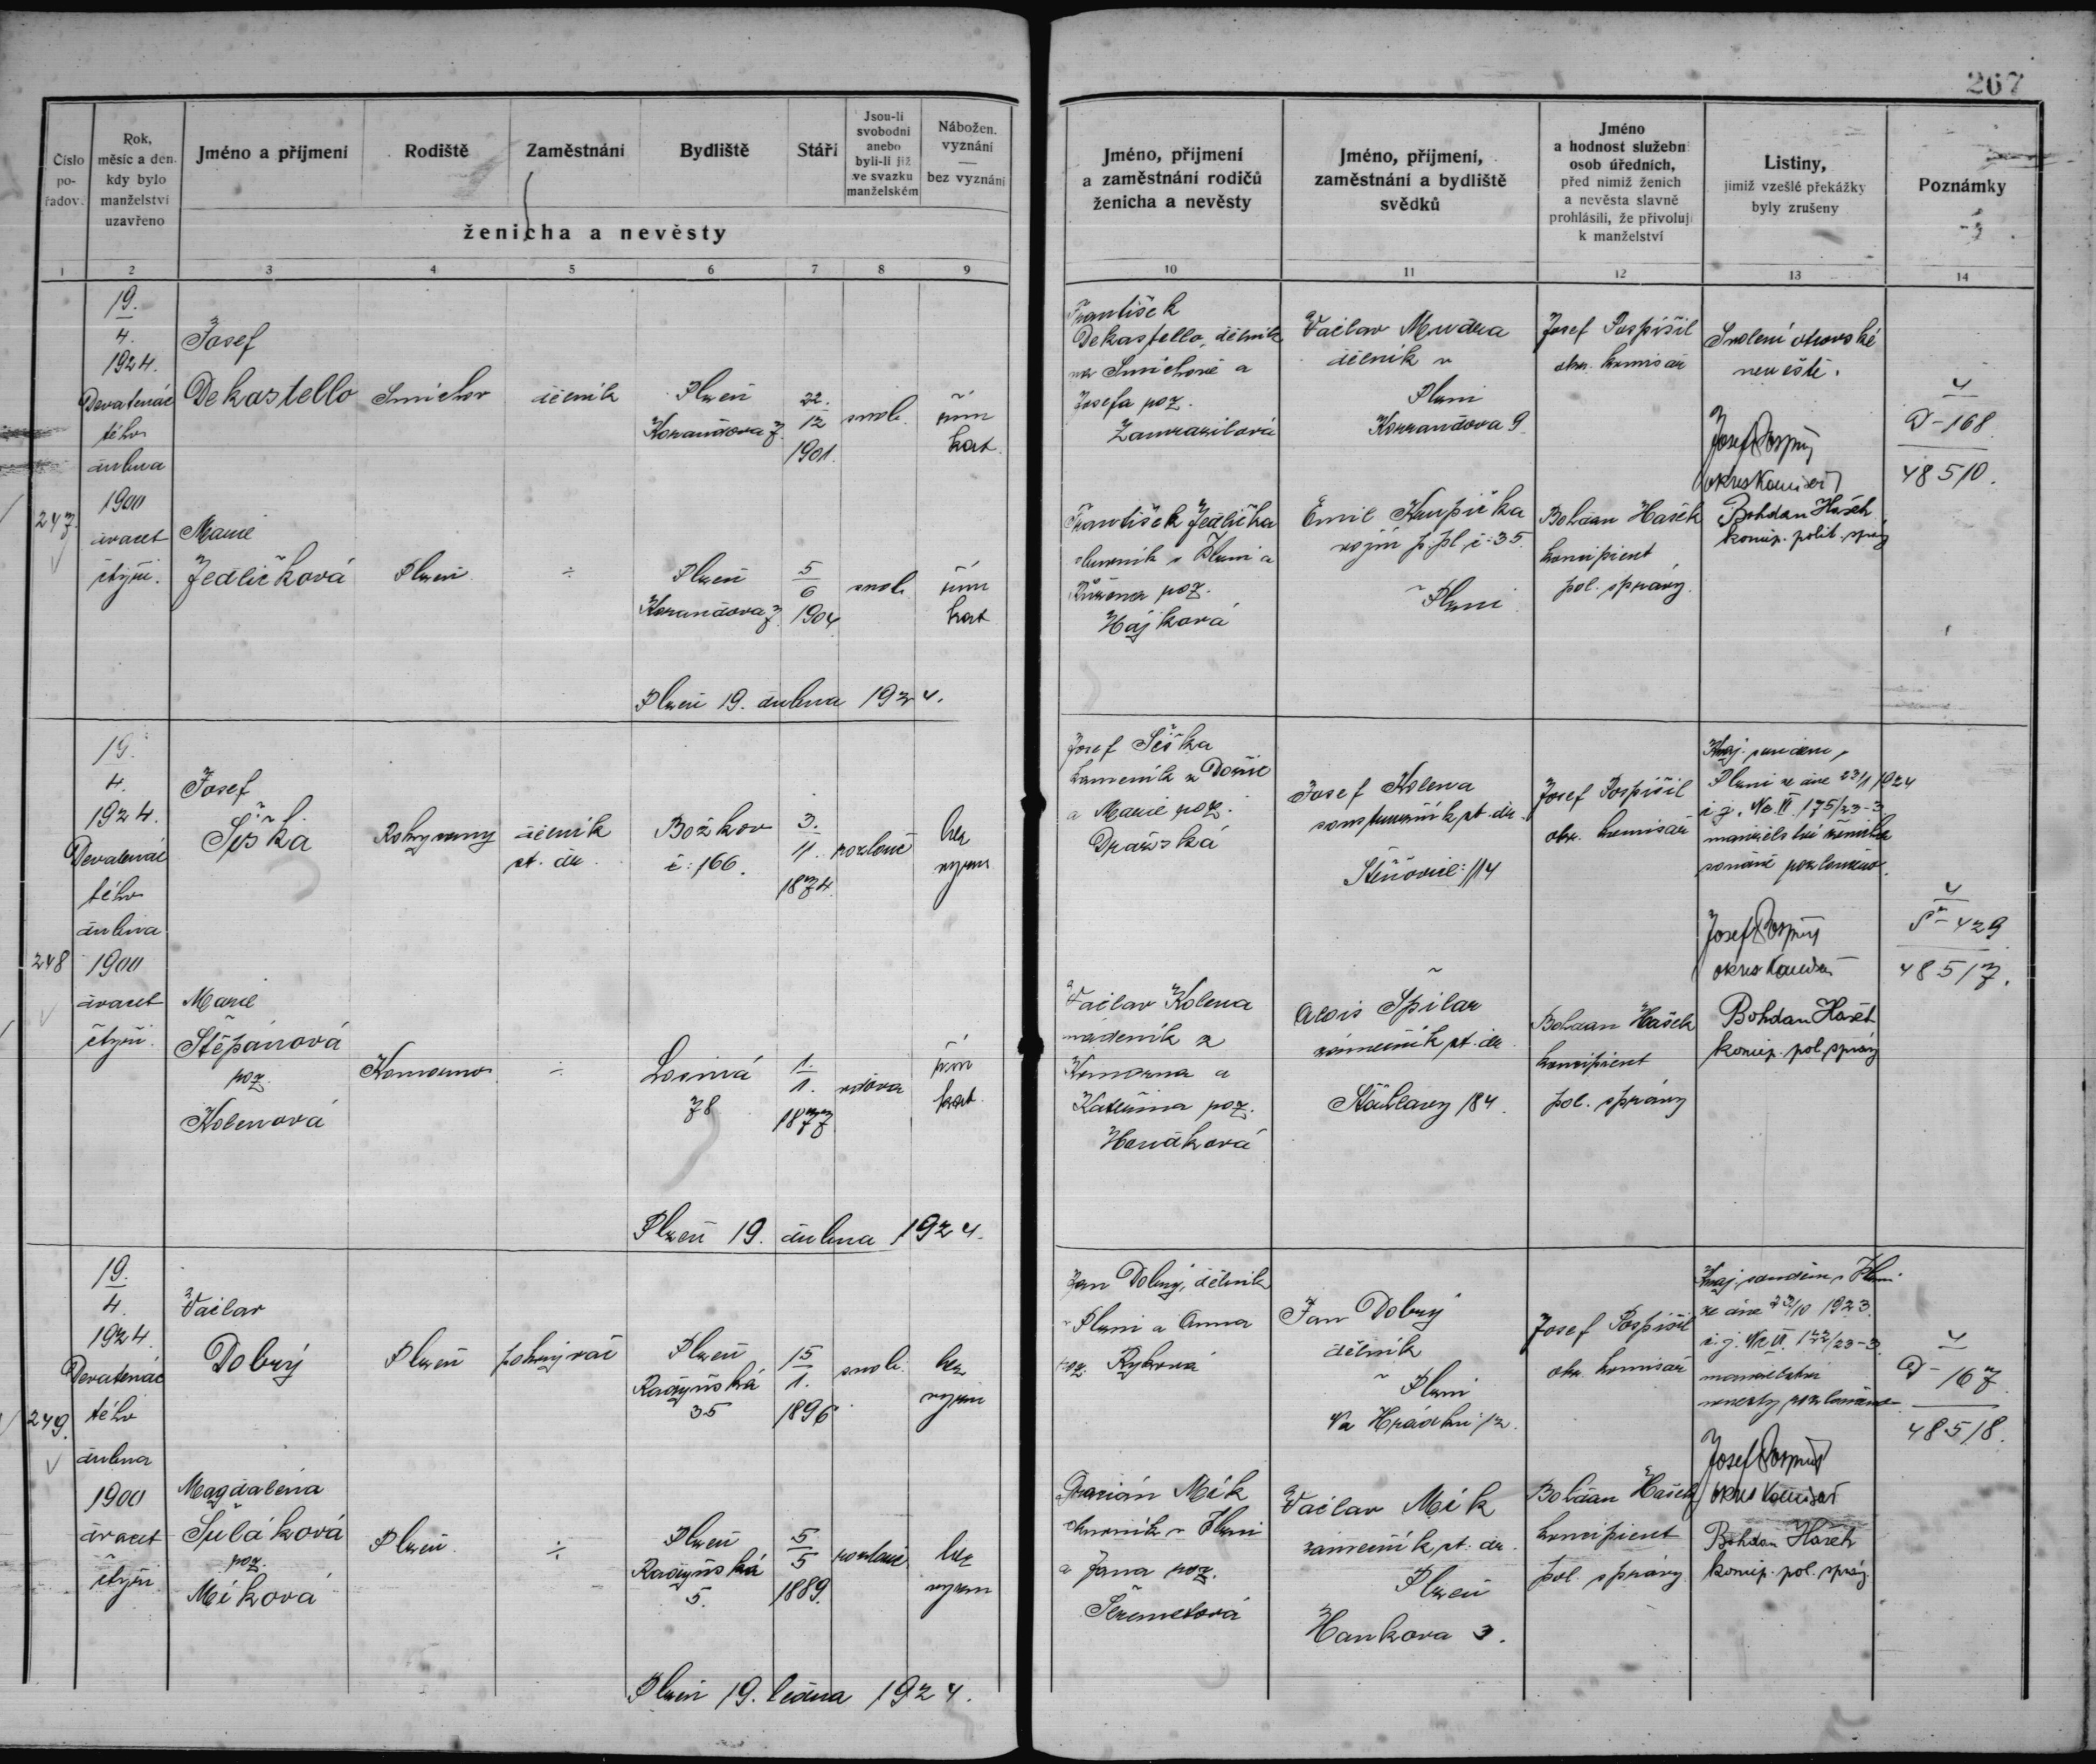 267
Číslo
po-
řadov.
Rok,
měsíc a den,
kdy bylo
manželství
uzavřeno
Jméno a příjmení
Rodiště
Zaměstnání
Bydliště
Stáří
Jsou-li
svobodni
anebo
byli-li již
ve svazku
manželském
Nábožen.
vyznání
—
bez vyznání
ženicha a nevěsty
Jméno, příjmení
a zaměstnání rodičů
ženicha a nevěsty
Jméno, příjmení,
zaměstnání a bydliště
svědků
Jméno
a hodnost služebn
osob úředních,
před nimiž ženich
a nevěsta slavně
prohlásili, že přivolují
k manželství
Listiny,
jimiž vzešlé překážky
byly zrušeny
Poznámky
1 2 3 4 5 6 7 8 9 10 11 12 13 14
247.
19.
4.
1924.
Devatenác
tého
dubna
1900
dvacet
čtyři.
Josef
Dekastello
Smíchov
dělník
Plzeň
Korandova 7.
22.
12
1901.
svob.
řím
kat.
František
Dekastello, dělník
na Smíchově a
Josefa poz.
Zamrazilová
Václav Mudra
dělník v
Plzni
Korandova 9
Josef Pospíšil
okr. komisař
Svolení otcovské
nevěstě.
Josef Pospíšil
okres komisař
4
D-168
48510.
Marie
Jedličková
Plzeň
÷
Plzeň
Korandova 7.
5
6
1904
svob.
řím
kat
František Jedlička
v Plzni a
Růžena poz.
Hájková
Emil Krupička
vojín p. pl. č: 35.
v Plzni
Bohdan Hašek
koncipient
pol. správy.
Bohdan Hašek
koncip. polit. správy
Plzeň 19. dubna 1924.
248
19.
4.
1924.
Devatenác
tého
dubna
1900
dvacet
čtyři.
Josef
Šiška
Rokycany
dělník
st. dr.
Božkov
č: 166.
3.
11.
1874.
rozlouč
bez
vyzn
Josef Šiška
kameník z
a Marie poz.
Dražská
Josef Kolena
st. dr.
Štěnovice: 114
Josef Pospíšil
okr. komisař
Kraj. soudem v
Plzni ze dne 23/1 1924
č.j. Nc VI 175/23-3
manželství ženicha
rozloučeno.
Josef Pospíšil
okres komisař
4
Š-429
48517.
Marie
Štěpánová
poz.
Kolenová
Komorno
÷
Losiná
78
1.
1.
1877
vdova
řím
kat.
Václav Kolena
nádeník z
Komorna a
Kateřina poz.
Honzáková
Alois Špilar
zámečník st. dr.
Šťáhlavy 184.
Bohdan Hašek
koncipient
pol. správy
Bohdan Hašek
koncip. pol. správy
Plzeň 19. dubna 1924.
249.
19.
4.
1924.
Devatenác
tého
dubna
1900
dvacet
čtyři
Václav
Dobrý
Plzeň
pokrývač
Plzeň
Radyňská
35
15
1.
1896
svob.
bez
vyzn
Jan Dobrý, dělník
v Plzni a Anna
poz. Rybová
Jan Dobrý
dělník
v Plzni
Na Hrádku: 12.
Josef Pospíšil
okr. komisař
Kraj. soudem v Plzni
ze dne 23/10 1923.
č.j. Nc VI. 122/23-3.
manželství
nevěsty rozloučeno
Josef Pospíšil
okres komisař
4
D-167
48518.
Magdalena
Šuláková
poz.
Míková
Plzeň
÷
Plzeň
Radyňská
5.
5
5
1889.
rozlouč
bez
vyzn
Mík
v Plzni
a Jana poz.
Šeremetová
Václav Mík
zámečník st. dr.
Plzeň
Hankova 3.
Bohdan Hašek
koncipient
pol. správy
Bohdan Hašek
koncip. pol. správy
Plzeň 19. ledna 1924.